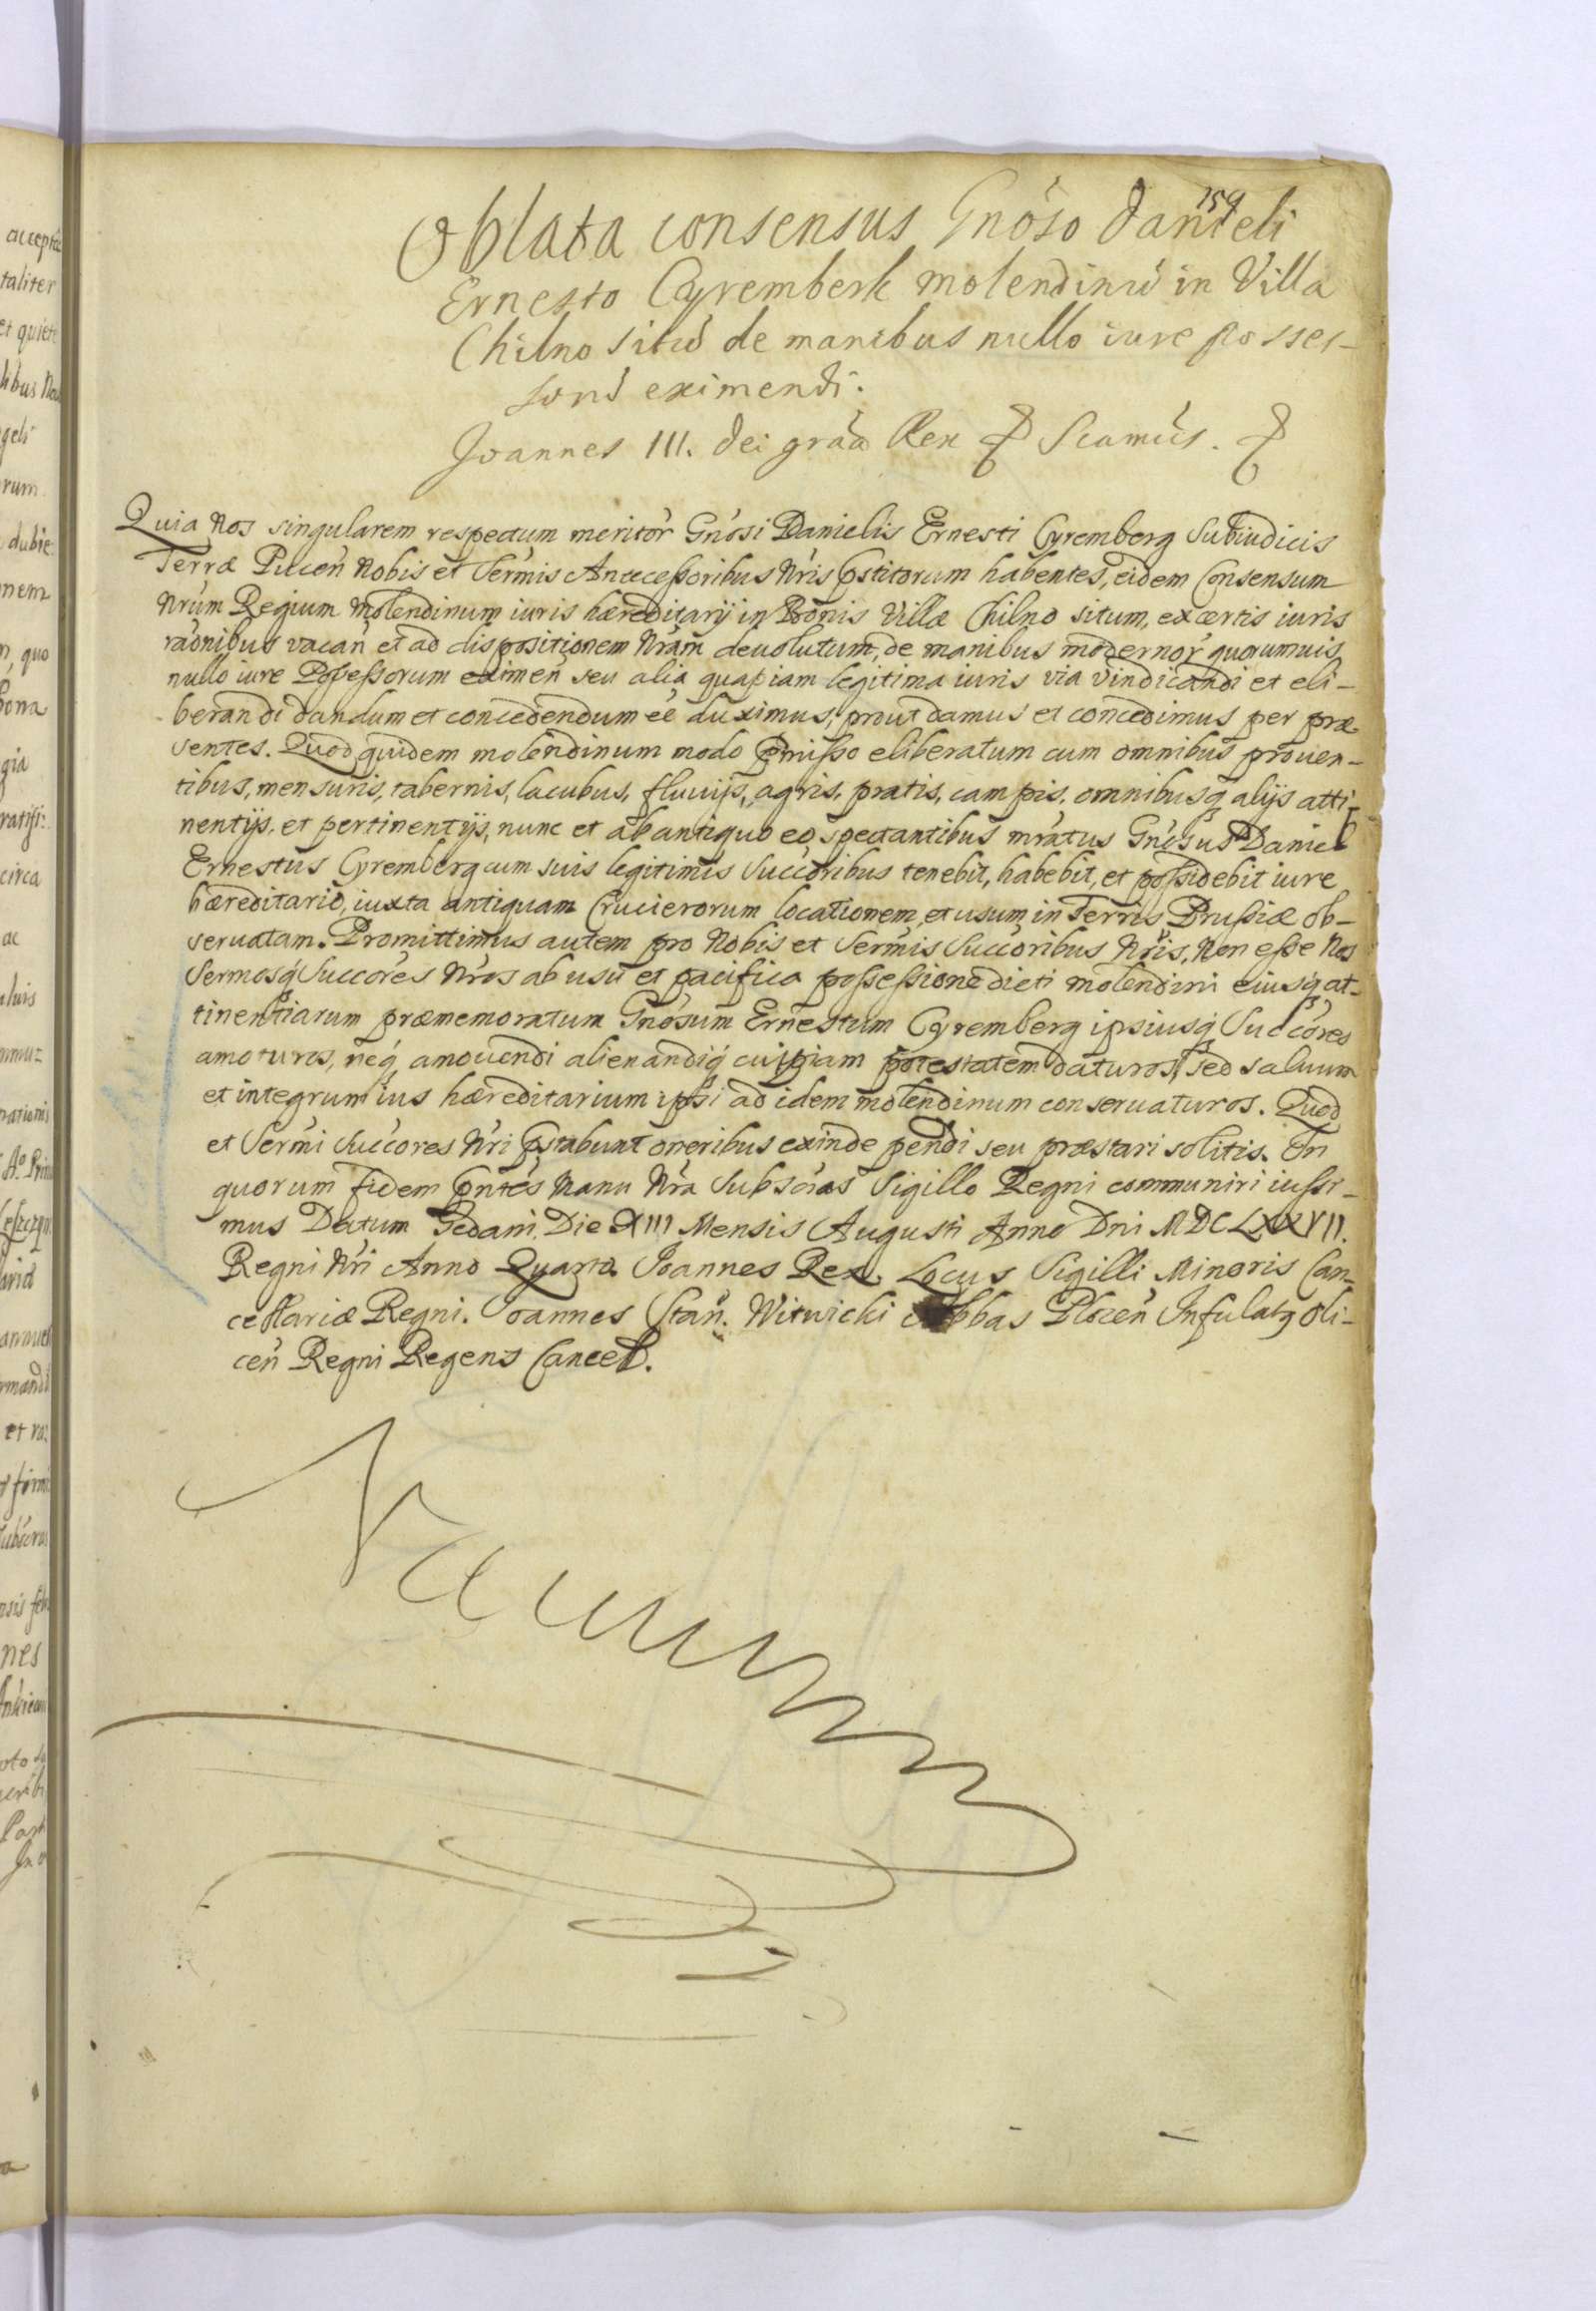 159
Oblata consensus Gnóso Danieli
Ernesto Cyremberk molendinú in Villa
Chilno sitú de manibus nullo iure posses-
sorú eximendi.
Joannes III. Dei gráa Rex & Scamús. &
Quia Nos singularem respectum meritór Gnósi Danielis Ernesti Cyremberg Subiudicis
Terræ Pucen̄ Nobis et Sermis Antecessoribus Nris pstitorum habentes, eidem Consensum
Nrum Regium molendinum iuris hæreditarij in Bonis Villæ Chilno situm, ex certis iuris
raónibus vacan̄ et ad dispositionem Nram deuolutum, de manibus modernor̄ quorumuis
nullo iure Possessorum eximen̄ seu alia quapiam legitima iuris via vindicandi et eli-
berandi dandum et concedendum eē duximus, prout damus et concedimus per præ
sentes. Quod quidem molendinum modo pmisso eliberatum cum omnibus prouen-
tibus, mensuris, tabernis, lacubus, fluuijs, agris, pratis, campis, omnibusq́ alijs atti-
nentijs, et pertinentijs, nunc et ab antiquo eo spectantibus mratus Gnósus Daniel
Ernestus Cyremberg cum suis legitimis Succóribus tenebit, habebit, et possidebit iure
hæreditario, iuxta antiquam Cruciferorum locationem, et usum in Terris Prussiæ ob-
seruatam. Promittimus autem pro Nobis et Sermis Succóribus Nris, Non esse Nos
Sermosq́ Succóres Nros ab usu et pacifica possessione dicti molendini eiusq́ at-
tinentiarum præmemoratum Gnósum Ernestum Cyremberg ipsiusq́ Succóres
amoturos, neq́ amouendi alienandiq́ cuipiam potestatem daturos, sed saluum
et integrum ius hæreditarium ipsi ad idem molendinum conseruaturos. Quod
et Sermi Succóres Nri pstabunt oneribus exinde pendi seu præstari solitis. In
quorum fidem pntes Manu Nra Subscras Sigillo Regni communiri iussi-
mus Datum Gedani. Die XIII Mensis Augusti Anno Dni MDCLXXVII.
Regni Nri Anno Quarto. Joannes Rex. Locus Sigilli Minoris Can-
cellariæ Regni. Joannes Stan. Witwicki Abbas Plocen̄ Infulatꝫ Oli-
cen̄ Regni Regens Cancell.